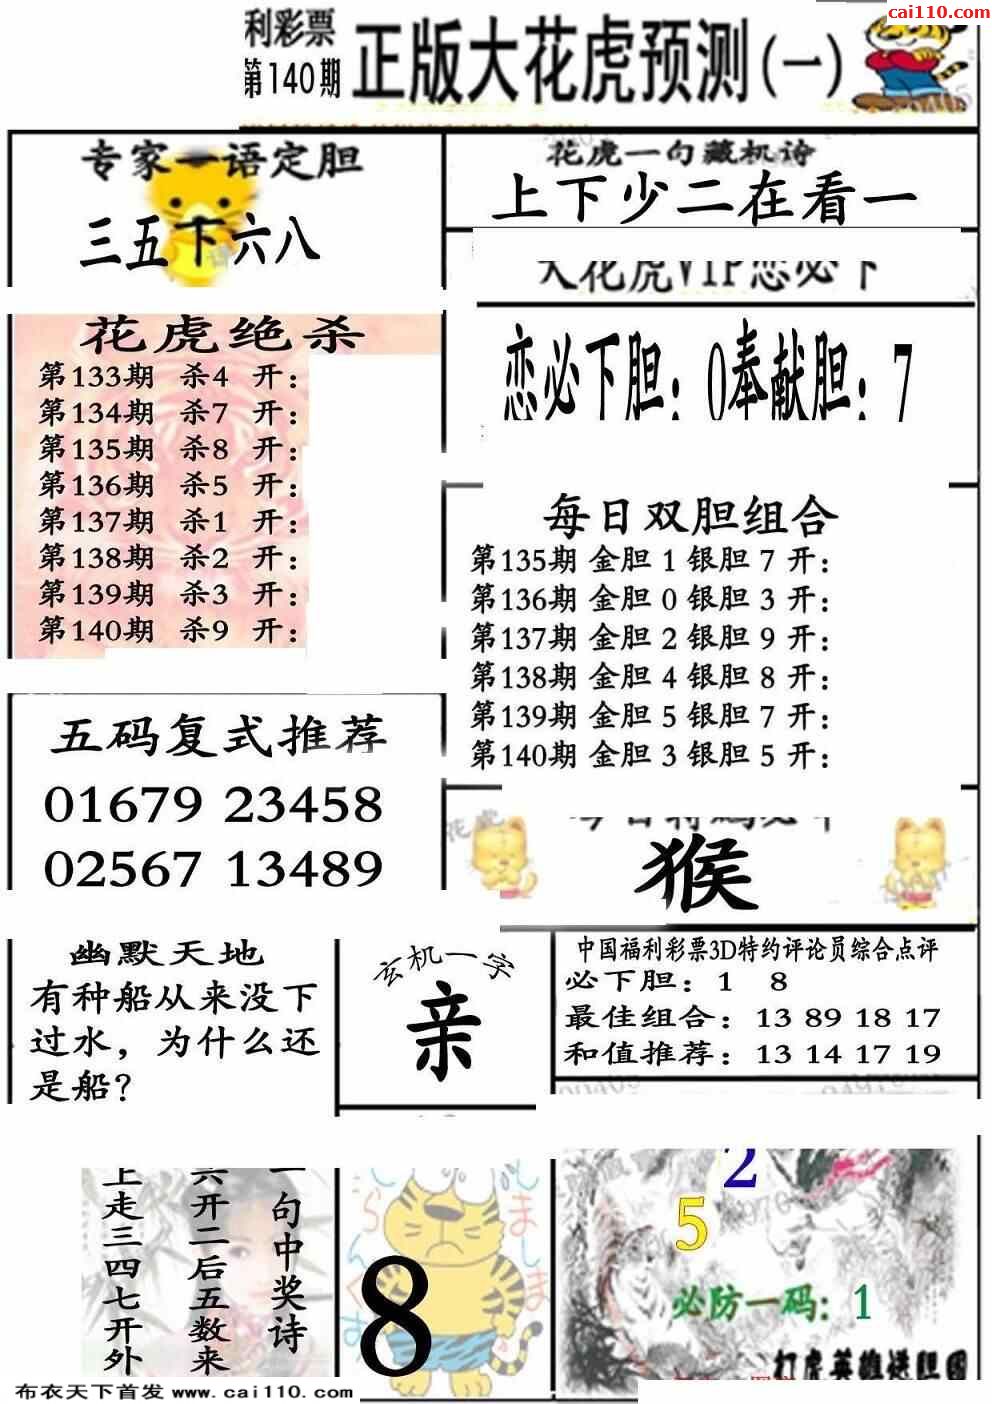 cai110.com
利彩票
第140期
正版大花虎预测(一)
专家一语定胆
三五下六八
花虎一句藏机诗
上下少二在看一
大花虎VIP恋必下
恋必下胆：0奉献胆：7
花虎绝杀
第133期 杀4 开：
第134期 杀7 开：
第135期 杀8 开：
第136期 杀5 开：
第137期 杀1 开：
第138期 杀2 开：
第139期 杀3 开：
第140期 杀9 开：
每日双胆组合
第135期 金胆 1 银胆 7 开：
第136期 金胆 0 银胆 3 开：
第137期 金胆 2 银胆 9 开：
第138期 金胆 4 银胆 8 开：
第139期 金胆 5 银胆 7 开：
第140期 金胆 3 银胆 5 开：
五码复式推荐
01679 23458
02567 13489
花虎
猴
幽默天地
有种船从来没下
过水，为什么还
是船？
玄机一字
亲
中国福利彩票3D特约评论员综合点评
必下胆：1 8
最佳组合：13 89 18 17
和值推荐：13 14 17 19
一句中奖诗
六开二后五数来
上走三四七开外
8
2
5
必防一码：1
打虎英雄送胆图
布衣天下首发 www.cai110.com